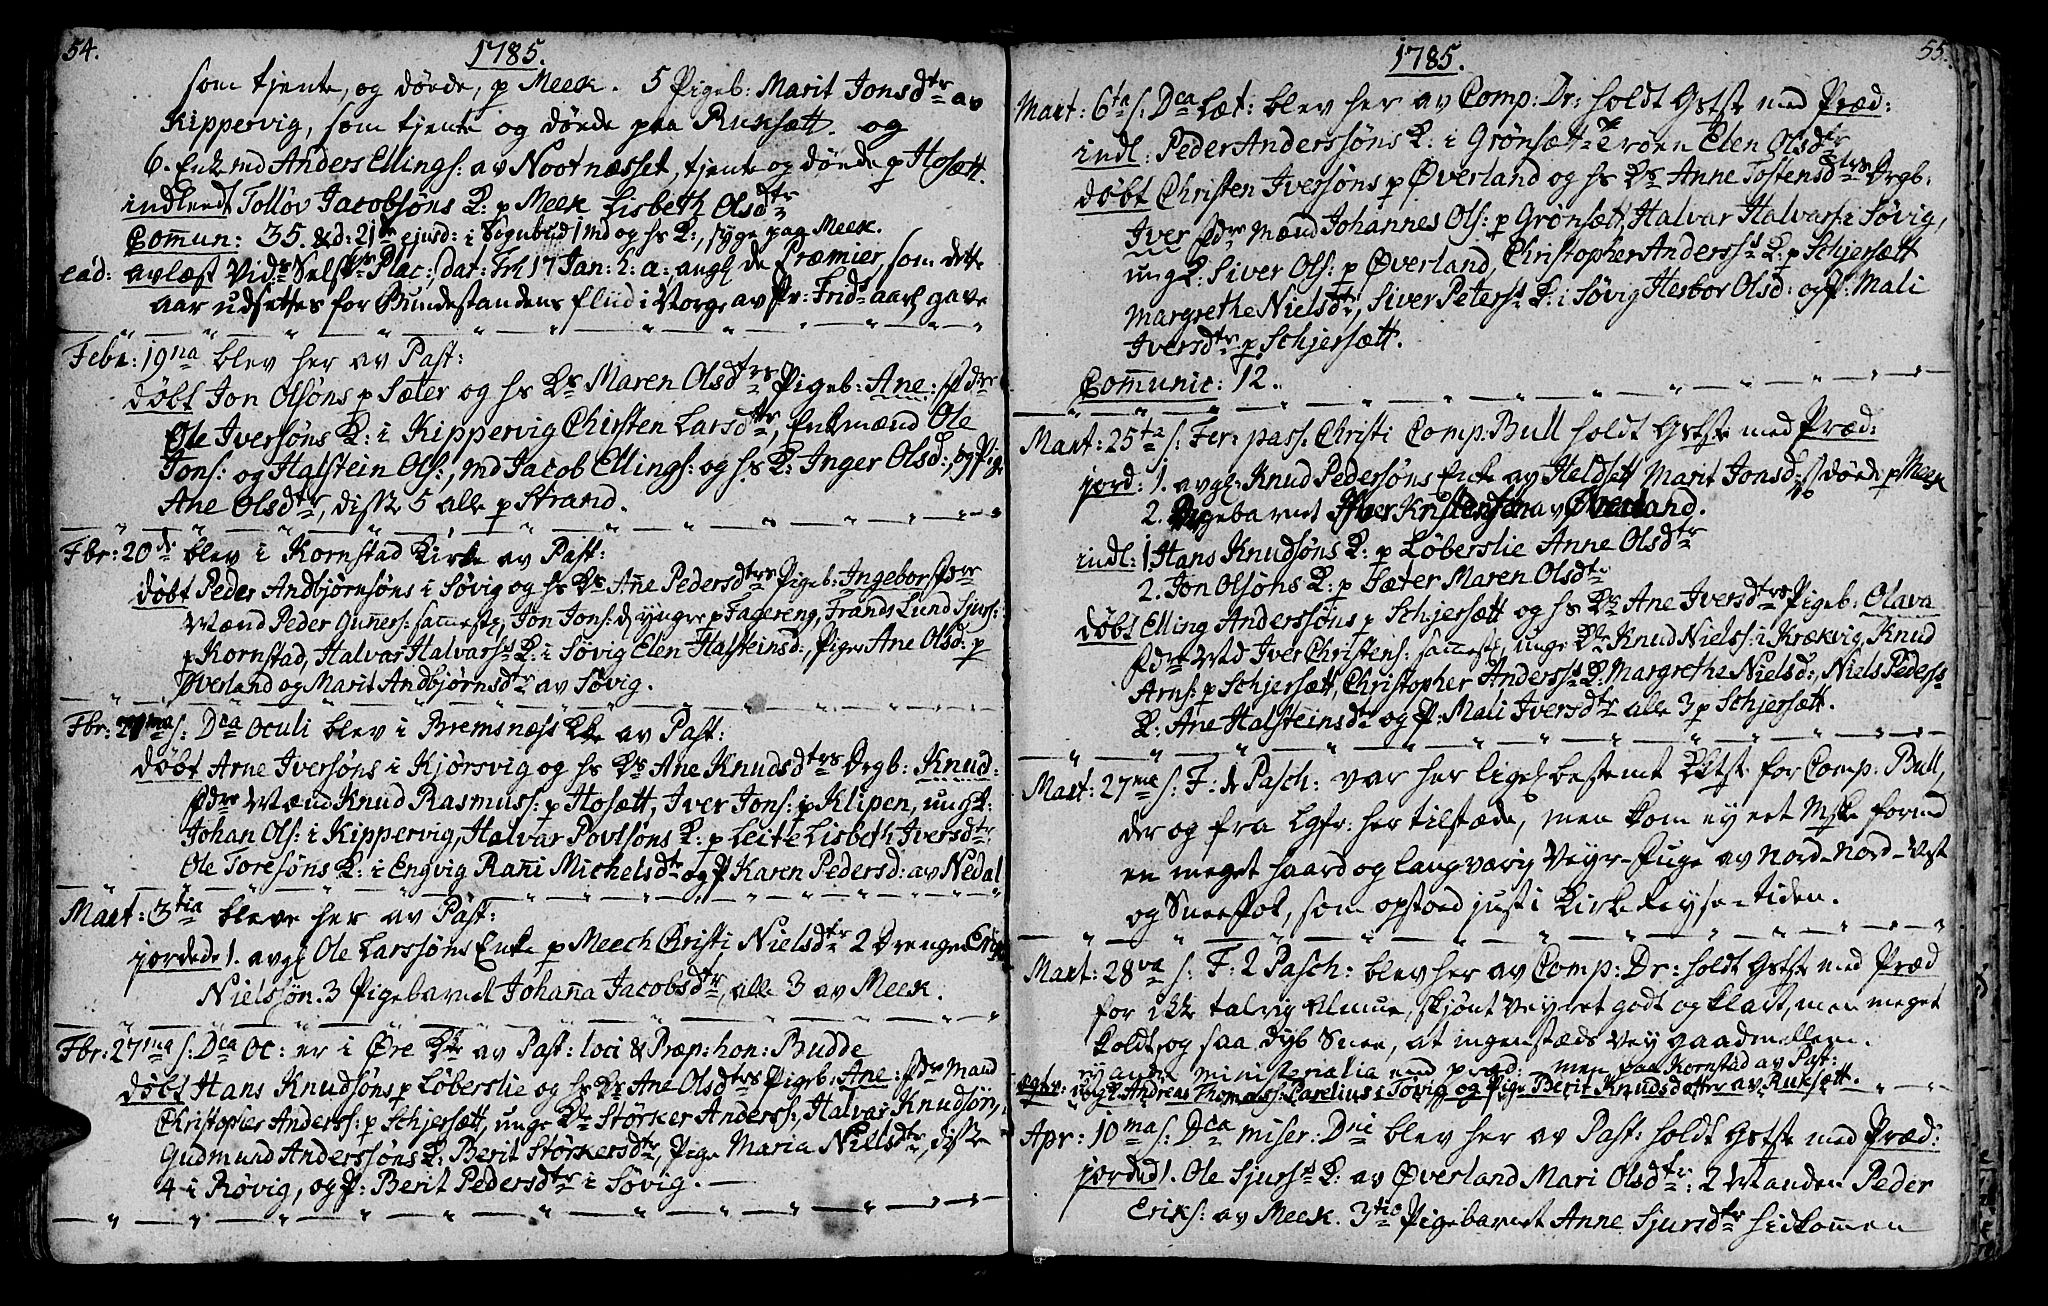 54.
1785.
som tjente, og døede, p Meek. 5 Pigeb: Marit Jonsdtr av
Kippervig, som tjente og døede paa Ruksætt. og
6. Enkmd Anders Ellings: av Nootnæsset, tjente og døede p Hosætt.
indleedt Tolløv Jacobsøns K: p Meek Lisbeth Olsdtr
Com̄un: 35. &d: 21 ejusd: i Sognebud 1 md og hs K:, syge paa Meek.
ead: avlæst Vids Selsk Plac: dat: Frh 17 Jan: h: a: angl de Præmier, som dette
aar udsettes for Bundestandens fliid i Norge av Pr: Frids aarl gave
Febr: 19na blev her av Past:
døbt Jon Olsøns p Sæter og hs Ks Maren Olsdtrs Pigeb: Ane: fdre
Ole Iversøns K: i Kippervig Chirsten Larsdtr, Enkemænd Ole
Jons: og Halstein Ols:, md Jacob Ellings: og hs K: Inger Olsd:, og Pige
Ane Olsdtr, disse 5 alle p Strand.
Fbr: 20de blev i Kornstad Kirke av Past:
døbt Peder Andbjørnsøns i Søvig og hs Ks An̄e Pedersdtrs Pigeb: Ingebor fdre
Mænd Peder Gun̄ers: samestz, Jon Jons: d yngre p Fagereng, Frands Lund Sjurs:
p Kornstad, Halvar Halvarss K: i Søvig Elen Halsteinsd:, Piger Ane Olsd: p
Øverland og Marit Andbjørnsdtr av Søvig.
Fbr: 27ma s: Dca Oculi blev i Bremsnæss Kke av Past:
døbt Arne Iversøns i Kjørsvig og hs Ks Ane Knudsdtrs Drgb: Knud:
fdre Mænd Knud Rasmuss: p Hosætt, Iver Jons: p Klipen, ungk:
Johan Ols: i Kippervig, Halvar Povlsøns K: p Leite Lisbeth Iversdtr
Ole Toresøns K: i Engvig Ran̄i Michelsdtr og P Karen Pedersd: av Nedal
Mart: 3tia bleve her av Past:
jordede 1. avgl Ole Larssøns Enke p Meech Christi Nielsdtr 2 Drengen
Nielssøn. 3 Pigebarnet Johan̄a Jacobsdtr, alle 3 av Meek.
Fbr: 27ma s: Dca Oc: er i Øre Kke av Past: loci & Præp: hon: Budde
døbt Hans Knudsøns p Løberslie og hs Ks Ane Olsdtrs Pigeb: Ane: fdre Mænd
Christopher Anderss: p Schjersætt, unge Ke Størker Anderss:, Halvar Knudsøn,
Gudmund Anderssøns K: Berit Størkersdtr, Pige Maria Nielsdtr, disse
4 i Røvig, og P: Berit Pedersdtr i Søvig.
1785.
55.
Mart: 6ta s: Dca Læt: blev her av Comp: Dr: holdt Gstste med Præd:
indl: Peder Anderssøns K: i Grønsætt-Trøen Elen Olsdtr
døbt Christen Iversøns p Øverland og hs Ks Anne Tostensdtrs Drgb:
Iver fdre Mænd Johannes Ols: p Grønsætt, Halvar Halvars: i Søvig,
ungk: Siver Ols: p Øverland, Christopher Anderss K: p Schjersætt
Margrethe Nielsdtr, Siver Peterss K: i Søvig Herbor Olsd: og P: Mali
Iversdtr p Schjersætt.
Com̄unic: 12.
Mart: 25ta s: Fer: pass: Christi Comp: Bull holdt Gstste med Præd:
jord: 1. avgl: Knud Pedersøns Enke av Heldsett Marit Jonsd: døede p Meek
2. Pigebarnet av Øverland.
indl: 1 Hans Knudsøns K: p Løberslie Anne Olsdtr
2. Jon Olsøns K: p Sæter Maren Olsdtr
døbt Elling Anderssøns p Schjersætt og hs Ks Ane Iversdtrs Pigeb: Olava
fdre Md Iver Christens: samests, unge Ke Knud Nielss: i Krækvig, Knud
Arns: p Schjersætt, Christopher Anderss K: Margrethe Nielsd:, Niels Pederss
K: Ane Halsteinsdtr og P: Mali Iversdtr alle 3 p Schjersætt.
Mart: 27ma s: F: 1 Pasch: var her ligel bestemt Ktste for Comp: Bull,
der og fra Lgfr: her tilstæde, men kom ey eet Mske formd
en meget haard og langvarig Veyr-fuge av Nord-Nord-Vest
og Sneefok, som opstoed just i Kirke Reyse-tiden.
Mart: 28va s: F: 2 Pasch: blev her av Comp: Dr: holdt Gstste med Præd
for ikke talrig Almue, skjønt Veyret godt og klart, men meget
koldt, og saa dyb Snee, at ingenstæds Vey gaad mellem.
ministerialia med præd: men paa Kornstad av Past:
ungk Andreas Thomass: Parelius i Tøvig og Pige Berit Knudsdotter av Ruksætt.
Apr: 10ma s: Dca Miser: Dni blev her av Past: holdt Gstste med Præd:
jorded 1. Ole Sjurss K: av Øverland Mari Olsdtr: 2 Manden Peder
Eriks: av Meek. 3tio Pigebarnet Anne Sjursdtr hidkom̄en